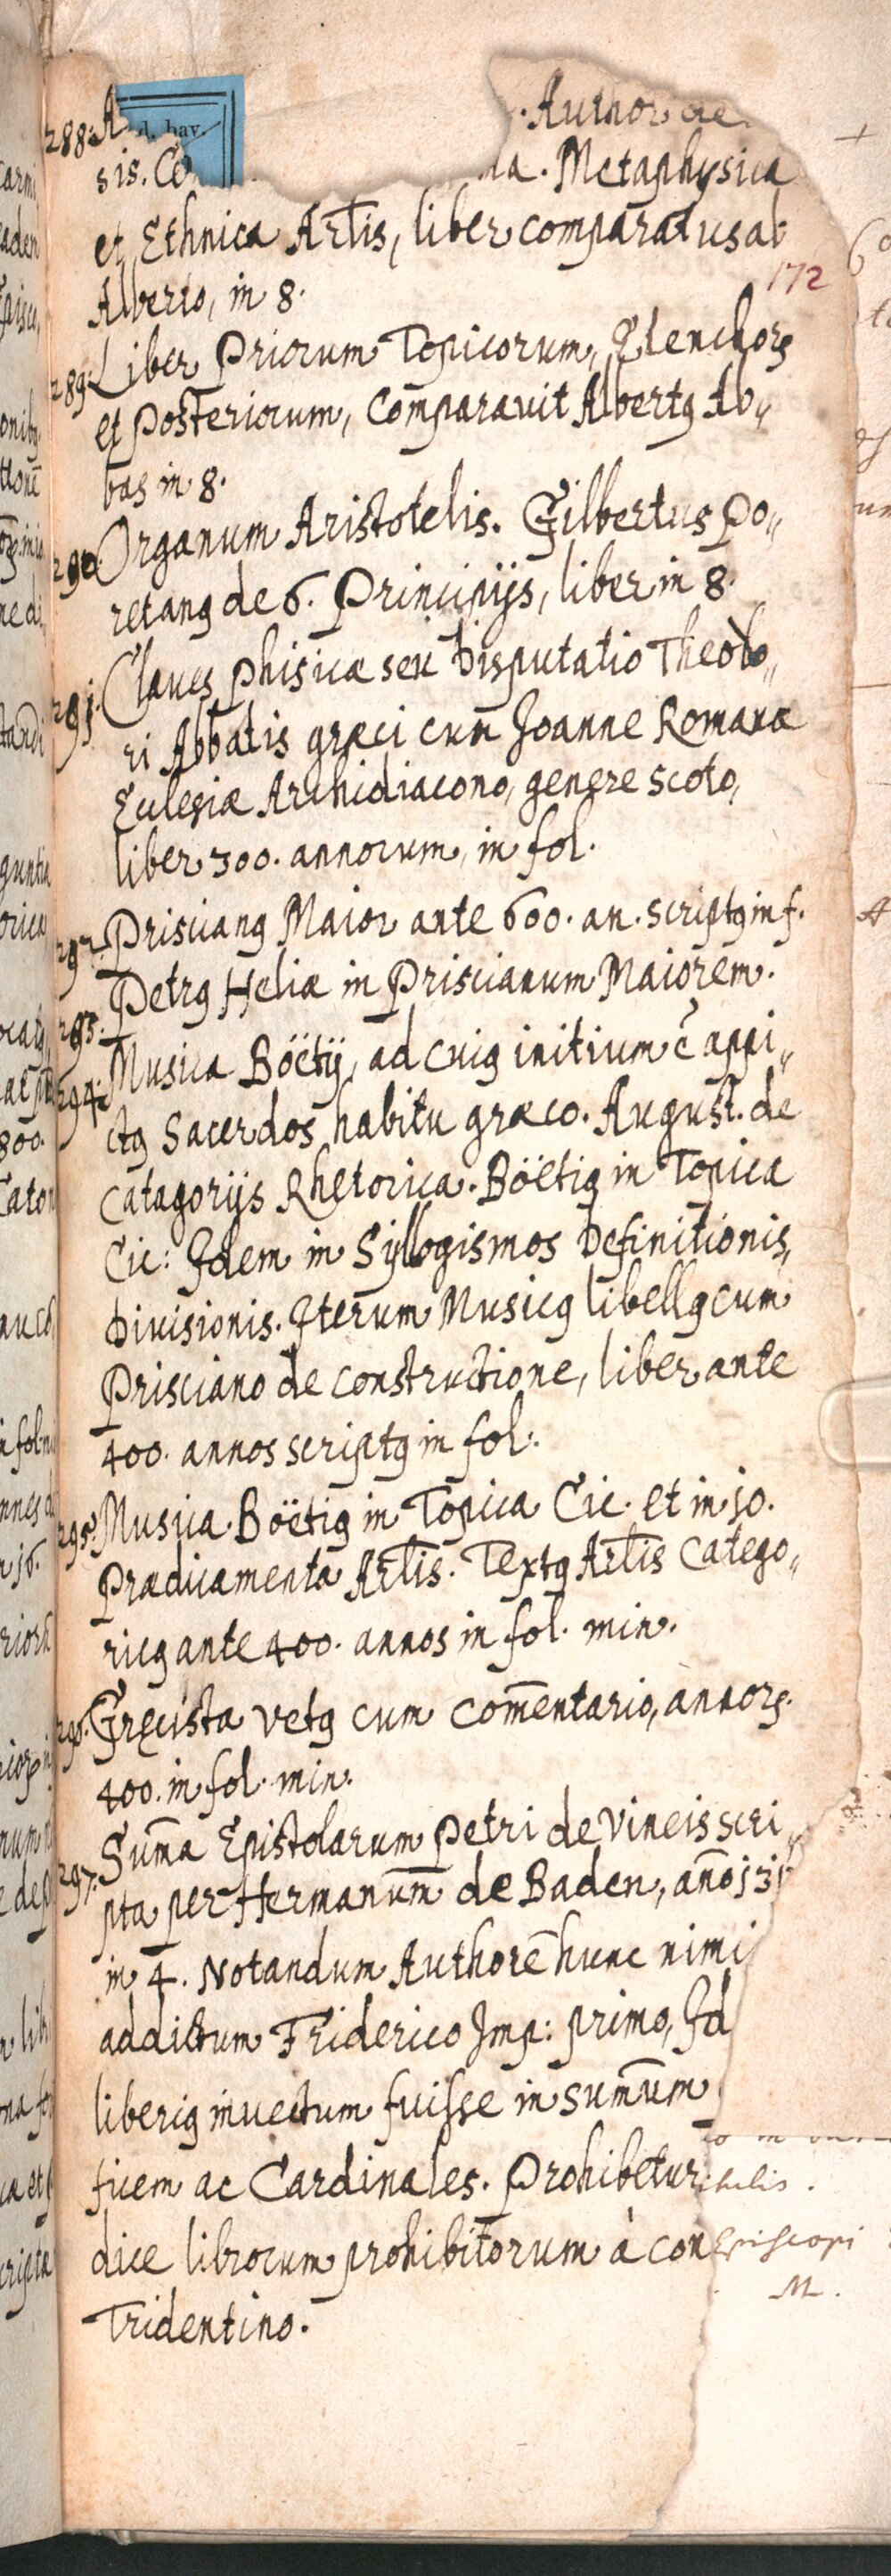 288. A . Author
d. bay.
sis. Co Metaphysica
et Ethnica Artis, liber comparatus ab
172
Alberto, in 8.
289. Liber Priorum Topicorum, Elenchorꝝ
et Posteriorum, Comparavit Albertꝰ Ab„
bas in 8.
290. Organum Aristotelis. Gilbertus Po„
retanꝰ de 6. Principijs, liber in 8.
291. Claves Phisicæ seu Disputatio Theodo„
ri Abbatis græci cum Joanne Romanæ
Ecclesiæ Archidiacono, genere scoto,
liber 300. annorum, in fol.
292. Priscianꝰ Maior ante 600. an. scriptꝰ in f.
293. Petrꝰ Heliæ in Priscianum Maiorem.
294. Musica Boëtij, ad cuiꝰ initium ē appi„
ctꝰ Sacerdos habitu græco. August. de
Catagorijs Rhetorica. Boëtiꝰ in Topica
Cic: Idem in Syllogismos Definitionis,
Divisionis. Iterum Musicꝰ libellꝰ cum
Prisciano de constructione, liber ante
400. annos scriptꝰ in fol.
295. Musica. Boëtiꝰ in Topica Cic. et in jo.
Prædicamenta Artis. Textꝰ Artis Catego„
ricꝰ ante 400. annos in fol. min.
296. Grecista vetꝰ cum com̄entario, annorꝝ.
400. in fol. min.
297. Sum̄a Epistolarum Petri de Vineis scri„
pta per Hermanum̄ de Baden, an̄o j3j
in 4. Notandum Authorē hunc nimi
addictum Friderico Imp: primo, Id
liberiꝰ invectum fuisse in sum̄um
ficem ac Cardinales. Prohibetur
dice librorum prohibitorum à con
Episcopi
M.
Tridentino.